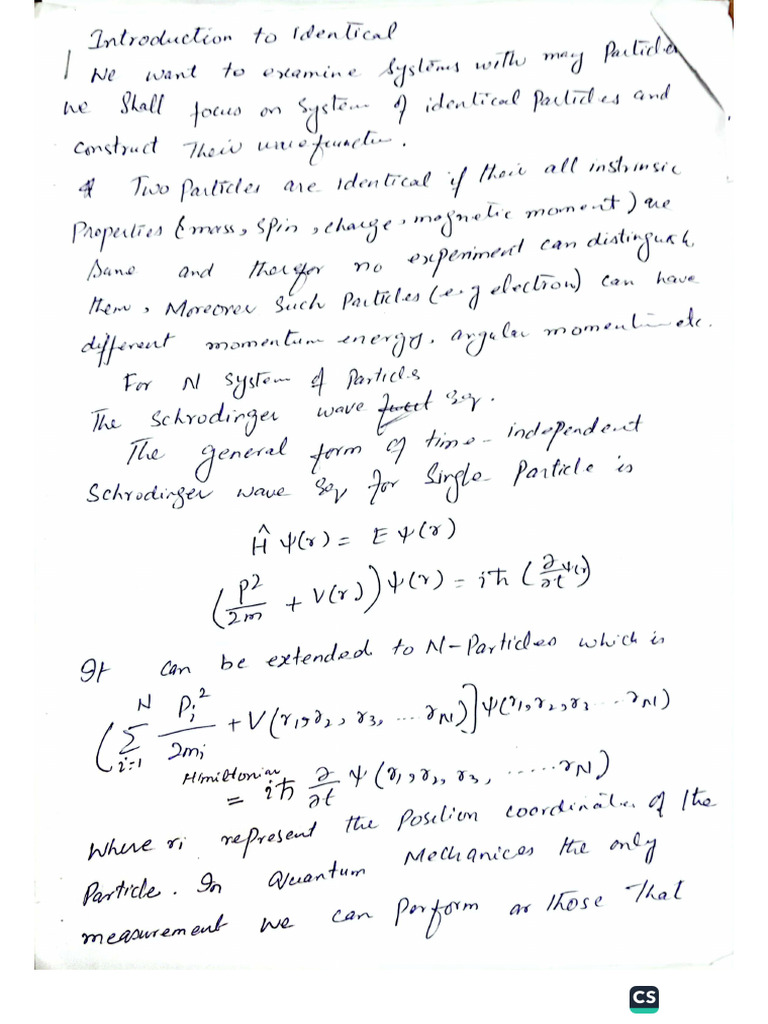 Introduction to Identical
We want to examine systems with may Particles
we Shall focus on system of identical Particles and
construct Their
* Two Particles are identical if their all instrinsic
Properties (mass, spin, charge, magnetic moment) are
Same and therefor no experiment can distinguish
them, Moreover Such Particles (e.g electron) can have
different momentum energy, angular momentum etc.
For N System of Particls
The Schrodinger wave eq.
The general form of time-independent
Schrodinger wave eq for Single Particle is
Ĥ ψ(r) = E ψ(r)
(P²/2m + V(r)) ψ(r) = iħ (∂/∂t ψ(r))
It can be extended to N-Particles which is
(∑ᵢ₌₁ᴺ Pᵢ²/2mᵢ + V(r₁, r₂, r₃, ... r_N)] ψ(r₁, r₂, r₃ ... r_N)
Hmiltonian
= iħ ∂/∂t ψ(r₁, r₂, r₃, ...... r_N)
Where ri represent the Position coordinates of the
Particle. In Quantum Mechanices the only
measurement we can Perform are those That
CS